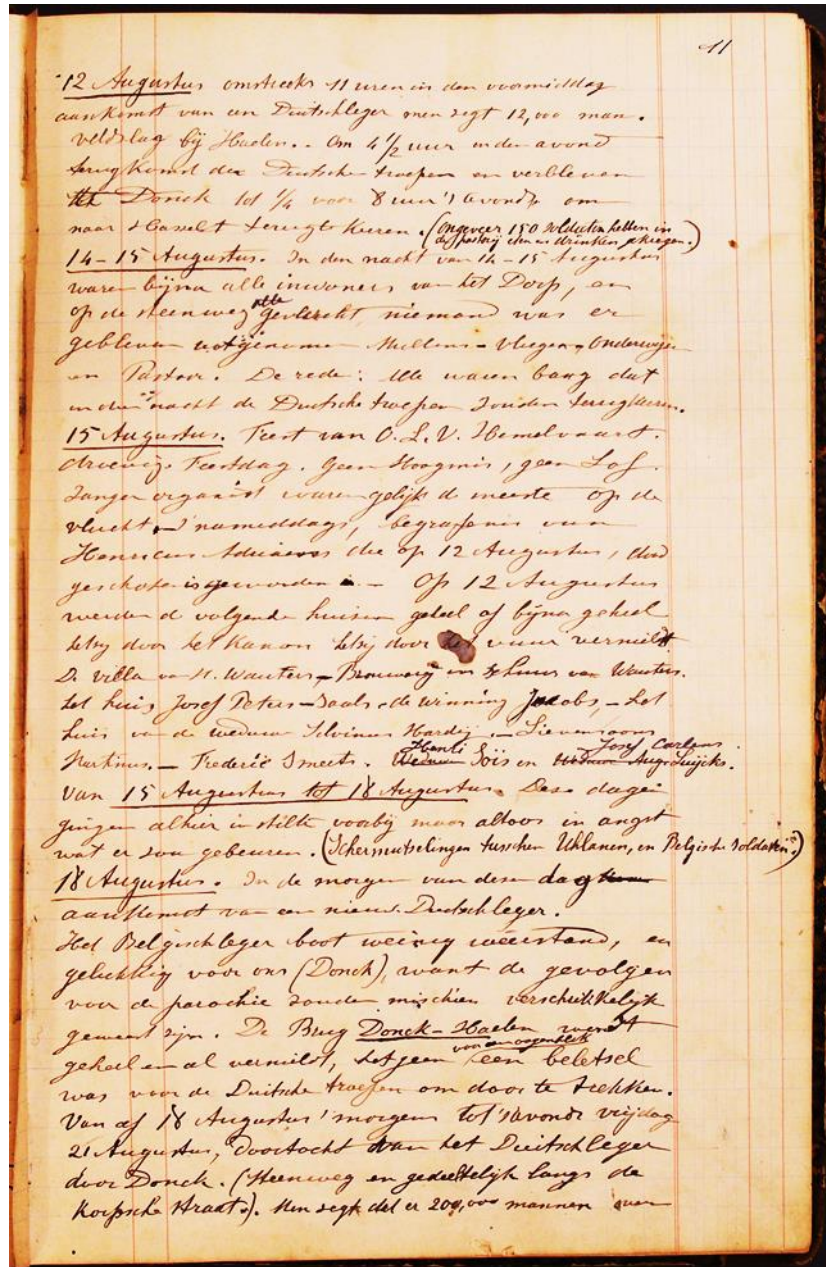 11
12 Augustus omstreeks 11 uren in den voormiddag
aankomst van een Duitschleger men zegt 12,000 man.
veldslag bij Haelen. - Om 4 1/2 uur in den avond
terugkomst der Duitsche troepen en verbleven
te Donck tot 1/4 voor 8 uur 's avonds om
naar Hasselt terug te keeren. (Ongeveer 150 soldaten hebben in
de pastorij eten en drinken gekregen.)
14-15 Augustus. In den nacht van 14-15 Augustus
waren bijna alle inwoners van het Dorp, en
op de steenweg alle gevlucht niemand was er
gebleven uitgenomen Mellens - Vliegen, Onderwijzer
en Pastoor. De rede: Alle waren bang dat
in dien nacht de Duitsche troepen zouden terugkeeren.
15 Augustus. Feest van O.L.V. Hemelvaart.
droevige Feestdag. Geen Hoogmis, geen Lof.
Zanger organist waren gelijk de meeste op de
vlucht. 's namiddags, begrafenis van
Henricus Adriaens die op 12 Augustus, dood
geschoten is geworden. - Op 12 Augustus
werden de volgende huizen geheel of bijna geheel
hetzij door het kanon hetzij door het vuur vernield.
De villa van H. Wauters - Brouwerij en schuur van Wauters.
het huis Josef Peters - Daals - de winning Jacobs, - het
huis van de weduwe Silvinus Hardij. - Lievensoons
Martinus. - Frederic Smeets. Henri Goïs en Josef Carlens
Aug. Luijcks.
Van 15 Augustus tot 18 Augustus. Deze dagen
gingen alhier in stilte voorbij maar altoos in angst
wat er zou gebeuren. (Schermutselingen tusschen Uhlanen, en Belgische soldaten.)
18 Augustus. In de morgen van dezen dag
aankomst van een nieuw Duitschleger.
Het Belgisch leger boot weinig weerstand, en
gelukkig voor ons (Donck), want de gevolgen
voor de parochie zouden misschien verschrikkelijk
geweest zijn. De Brug Donck-Haelen werdt
geheel en al vernield, hetgeen voor een oogenblik een beletsel
was voor de Duitsche troepen om door te trekken.
Van af 18 Augustus 'smorgens tot 'savonds vrijdag
21 Augustus, doortocht van het Duitschleger
door Donck. (Steenweg en gedeeltelijk langs de
Korpsche straat.). Men zegt dat er 200,000 mannen